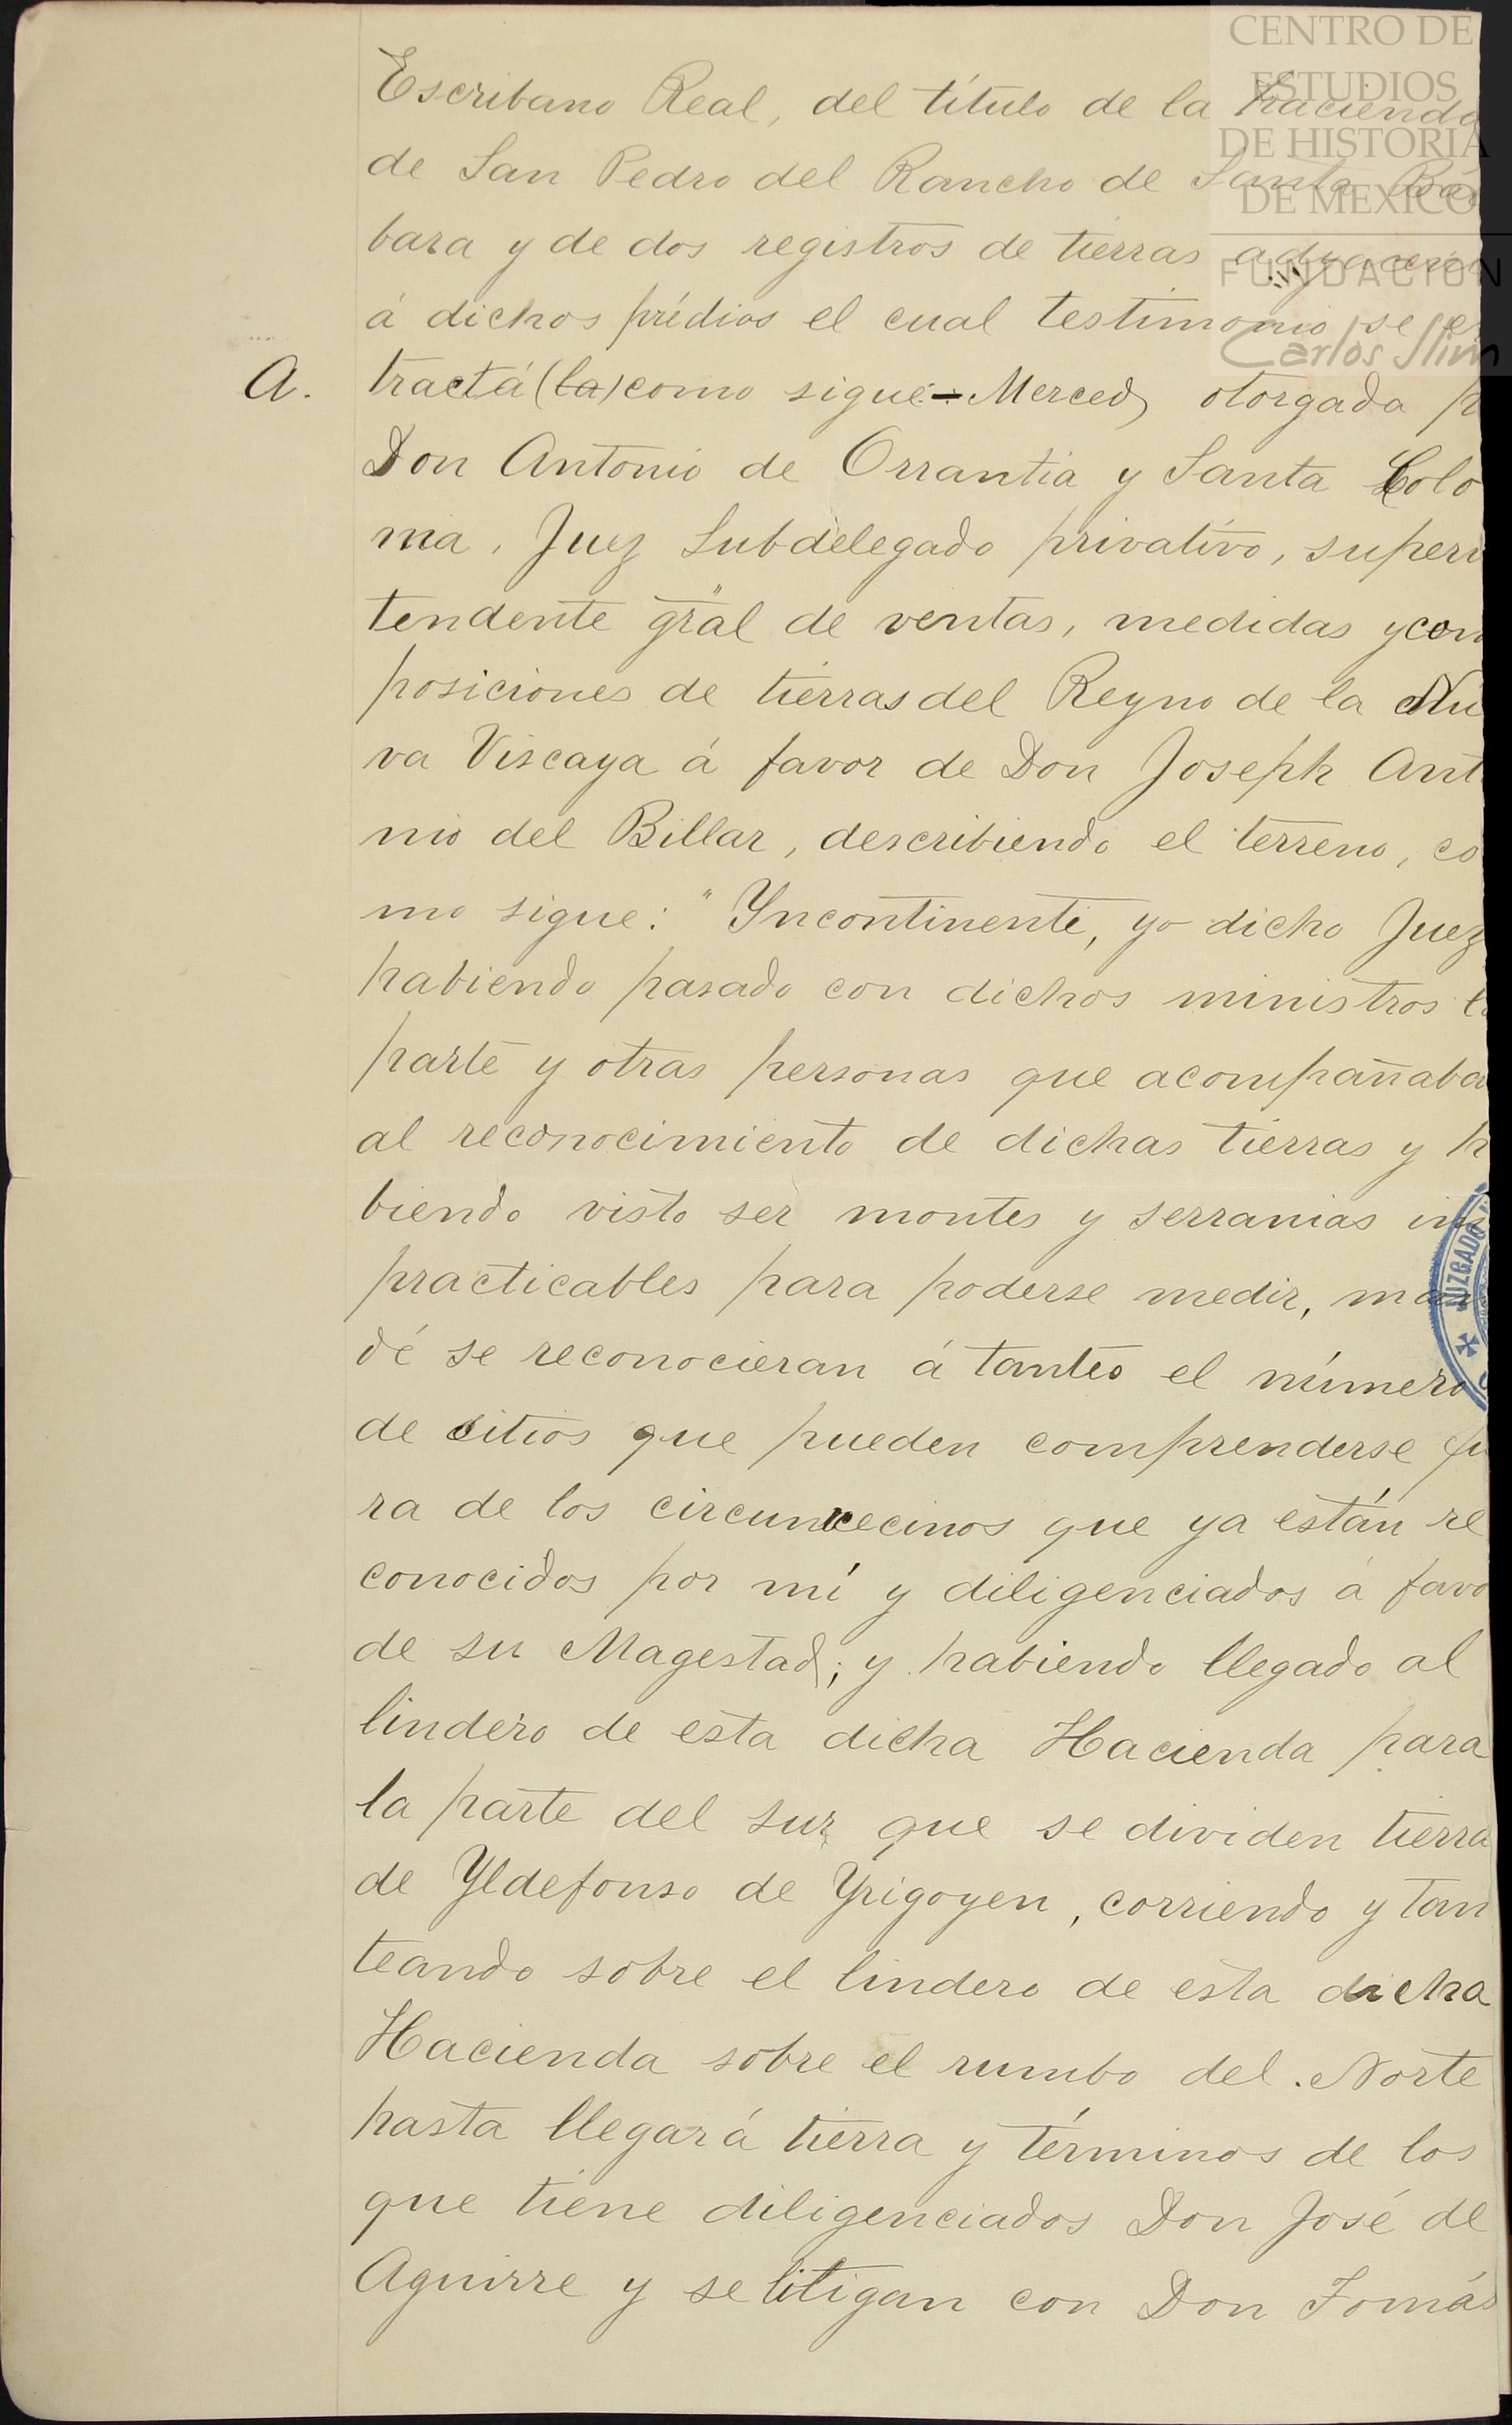 CENTRO DE
ESTUDIOS
DE HISTORIA
DE MEXICO
FUNDACION
Carlos Slim
Escribano Real, del título de la hacienda
de San Pedro del Rancho de Santa Bár
bara y de dos registros de tierras adyacen
á dichos prédios el cual testimonio se e
A. tractá (la) como sigue - Merced otorgada p
Don Antonio de Orrantia y Santa Colo
ma, Juez Subdelegado privativo, superi
tendente gral de ventas, medidas y com
posiciones de tierras del Reyno de la Nu
va Viscaya á favor de Don Joseph Ant
nio del Billar, describiendo el terreno, co
mo sigue: "Yncontinente, yo dicho Juez
habiendo pasado con dichos ministros l
parte y otras personas que acompañaba
al reconocimiento de dichas tierras y h
biendo visto ser montes y serranias im
practicables para poderse medir, man
dé se reconocieran á tanteo el número
de sitios que pueden comprenderse fu
ra de los circunvecinos que ya están re
conocidos por mí y diligenciados á favo
de su Magestad; y habiendo llegado al
lindero de esta dicha Hacienda para
la parte del sur que se dividen tierra
de Yldefonso de Yrigoyen, corriendo y tan
teando sobre el lindero de esta dicha
Hacienda sobre el rumbo del Norte
hasta llegar á tierra y términos de los
que tiene diligenciados Don José de
Aguirre y se litigan con Don Tomás
JUZGADO